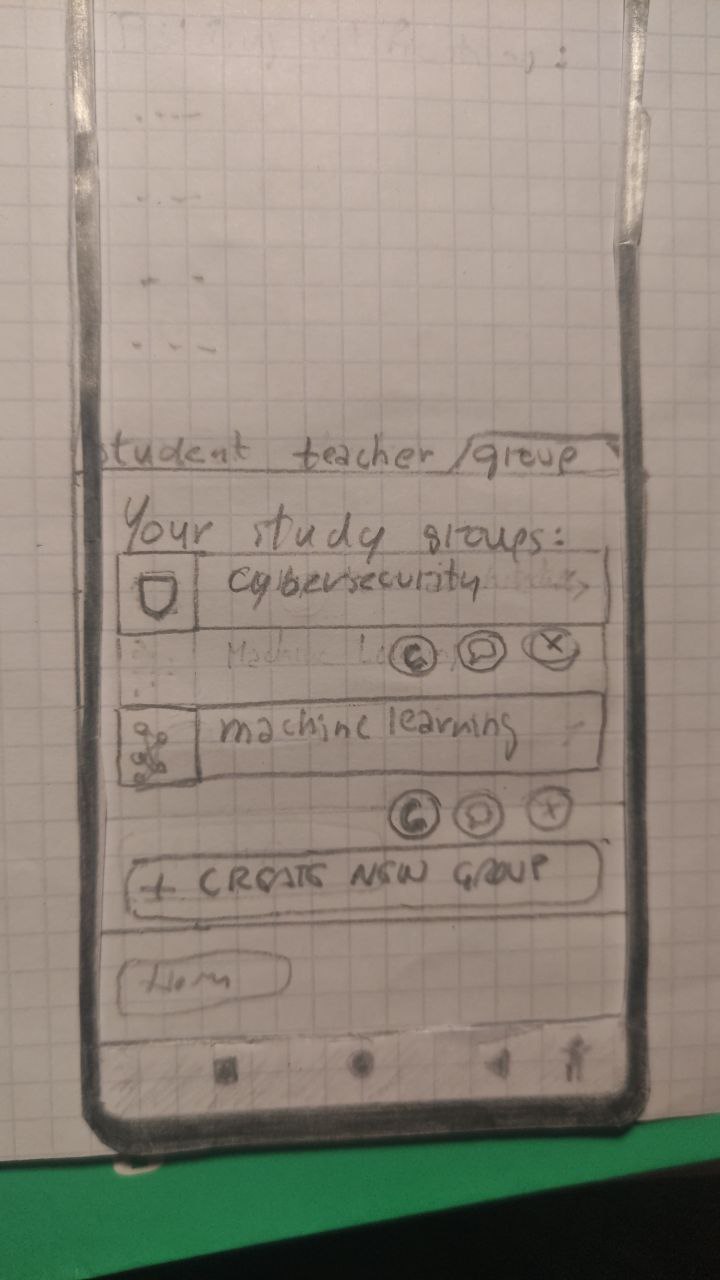 student teacher group
Your study groups:
cybersecurity
Machine
machine learning
+ CREATE NEW GROUP